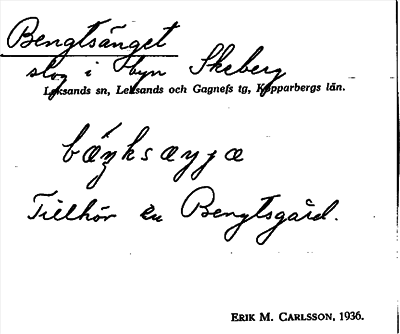 Bengtsänget
slog i byn Skeberg
Leksands sn, Leksands och Gagnefs tg, Kopparbergs län.
Tillhör en Bengtsgård.
ERIK M. CARLSSON, 1936.